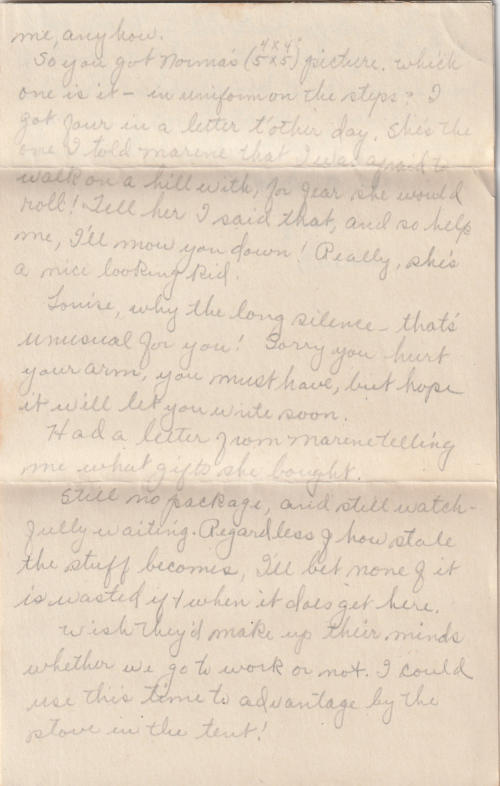 me, anyhow.
So you got Norma's (5x5) 4x4 picture. which
one is it - in uniform on the steps? I
got four in a letter t'other day. She's the
one I told marene that I was afraid to
walk on a hill with, for fear she would
roll! Tell her I said that, and so help
me, I'll mow you down! Really, she's
a nice looking kid.
Louise, why the long silence - that's
unusual for you! Sorry you hurt
your arm, you must have, but hope
it will let you write soon.
Had a letter from marene telling
me what gifts she bought.
Still no package, and still watch-
fully waiting. Regardless of how stale
the stuff becomes, I'll bet none of it
is wasted if & when it does get here.
Wish they'd make up their minds
whether we go to work or not. I could
use this time to advantage by the
stove in the tent!